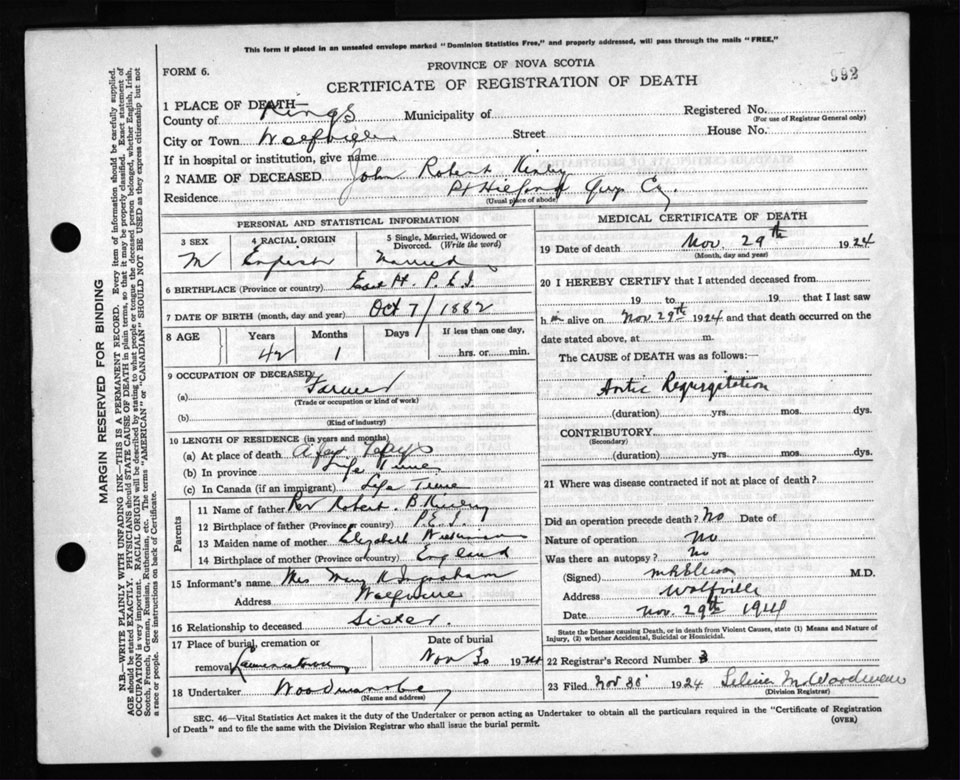 This form if placed in an unsealed envelope marked "Dominion Statistics Free," and properly addressed, will pass through the mails "FREE,"
PROVINCE OF NOVA SCOTIA
FORM 6.
CERTIFICATE OF REGISTRATION OF DEATH
992
1 PLACE OF DEATH—
County of Kings Municipality of Registered No.
(For use of Registrar General only)
City or Town Wolfville Street House No.
If in hospital or institution, give name
2 NAME OF DECEASED John Robert
Residence Pt Hilford Guys Co.
(Usual place of abode)
PERSONAL AND STATISTICAL INFORMATION
3 SEX
M
4 RACIAL ORIGIN
English
5 Single, Married, Widowed or
Divorced. (Write the word)
Married
6 BIRTHPLACE (Province or country) East Pt. P.E.I.
7 DATE OF BIRTH (month, day and year) Oct 7/1882
8 AGE
Years
42
Months
1
Days
If less than one day,
hrs. or min.
9 OCCUPATION OF DECEASED
(a) Farmer
(Trade or occupation or kind of work)
(b)
(Kind of industry)
10 LENGTH OF RESIDENCE (in years and months)
(a) At place of death A few days
(b) In province Life Time
(c) In Canada (if an immigrant) Life Time
Parents
11 Name of father Rev Robert B.
12 Birthplace of father (Province or country) P.E.I.
13 Maiden name of mother Elizabeth
14 Birthplace of mother (Province or country) England
15 Informant's name Mrs Mary K Ingraham
Address Wolfville
16 Relationship to deceased Sister.
17 Place of burial, cremation or
removal Lawrencetown
Date of burial
Nov 30 1924
18 Undertaker Woodman &Co
(Name and address)
MEDICAL CERTIFICATE OF DEATH
19 Date of death Nov. 29th 1924
(Month, day and year)
20 I HEREBY CERTIFY that I attended deceased from
19 to 19 that I last saw
h im alive on Nov. 29th 1924 and that death occurred on the
date stated above, at m.
The CAUSE of DEATH was as follows:—
Aortic Regurgitation
(duration) yrs. mos. dys.
CONTRIBUTORY
(Secondary)
(duration) yrs. mos. dys.
21 Where was disease contracted if not at place of death?
Did an operation precede death? No Date of
Nature of operation No
Was there an autopsy? No
(Signed) M.D.
Address Wolfville
Date Nov. 29th 1924
State the Disease causing Death, or in death from Violent Causes, state (1) Means and Nature of
Injury, (2) whether Accidental, Suicidal or Homicidal.
22 Registrar's Record Number 3
23 Filed Nov 30 1924 M. Woodman
(Division Registrar)
SEC. 46—Vital Statistics Act makes it the duty of the Undertaker or person acting as Undertaker to obtain all the particulars required in the "Certificate of Registration
of Death" and to file the same with the Division Registrar who shall issue the burial permit.
(OVER)
MARGIN RESERVED FOR BINDING
N.B.—WRITE PLAINLY WITH UNFADING INK—THIS IS A PERMANENT RECORD. Every item of information should be carefully supplied.
AGE should be stated EXACTLY. PHYSICIANS should STATE CAUSE OF DEATH in plain terms, so that it may be properly classified. Exact statement of
OCCUPATION is very important. RACIAL ORIGIN will be described by stating to what people or tongue the deceased person belonged, whether English, Irish,
Scotch, French, German, Russian, Ruthenian, etc. The terms "AMERICAN" or "CANADIAN" SHOULD NOT BE USED as they express citizenship but not
a race or people. See instructions on back of Certificate.